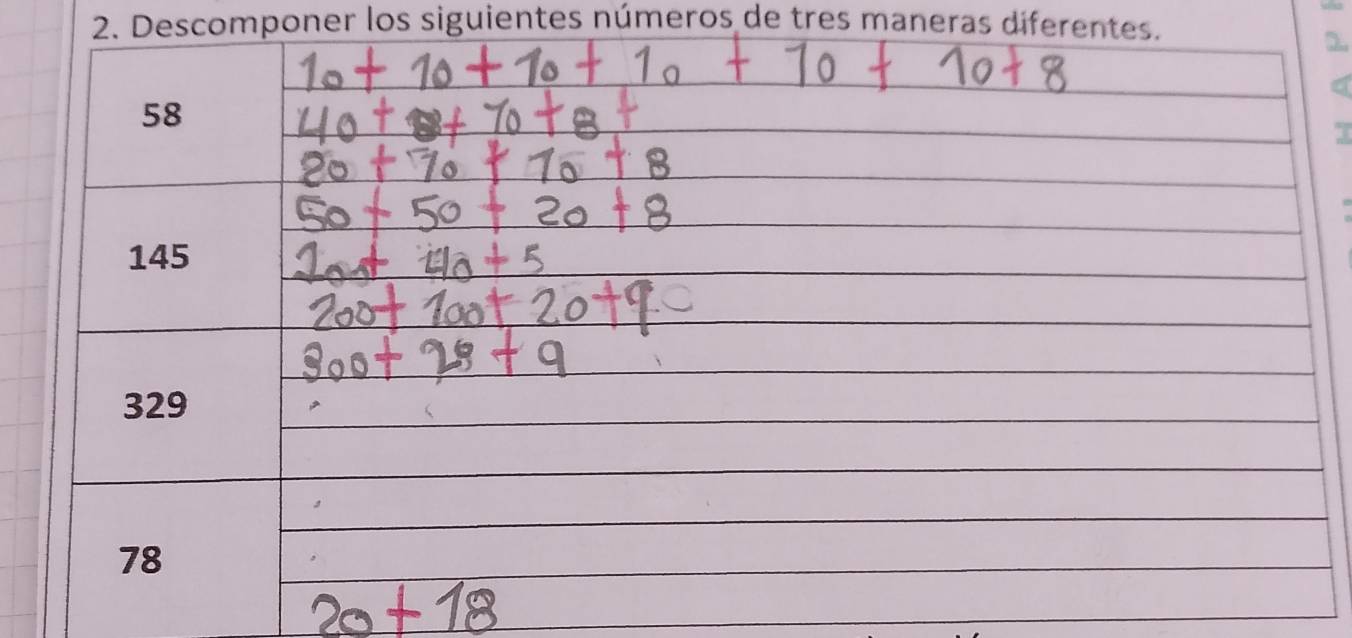 2. Descomponer los siguientes números de tres maneras diferentes.
10 + 10 + 10 + 10 + 10 + 10 + 8
58
40 + + 10 + 8 +
20 + 10 + 10 + 8
50 + 50 + 20 + 8
145
100 + 40 + 5
200 + 100 + 20 + 9
300 + + 9
329
78
20 + 18